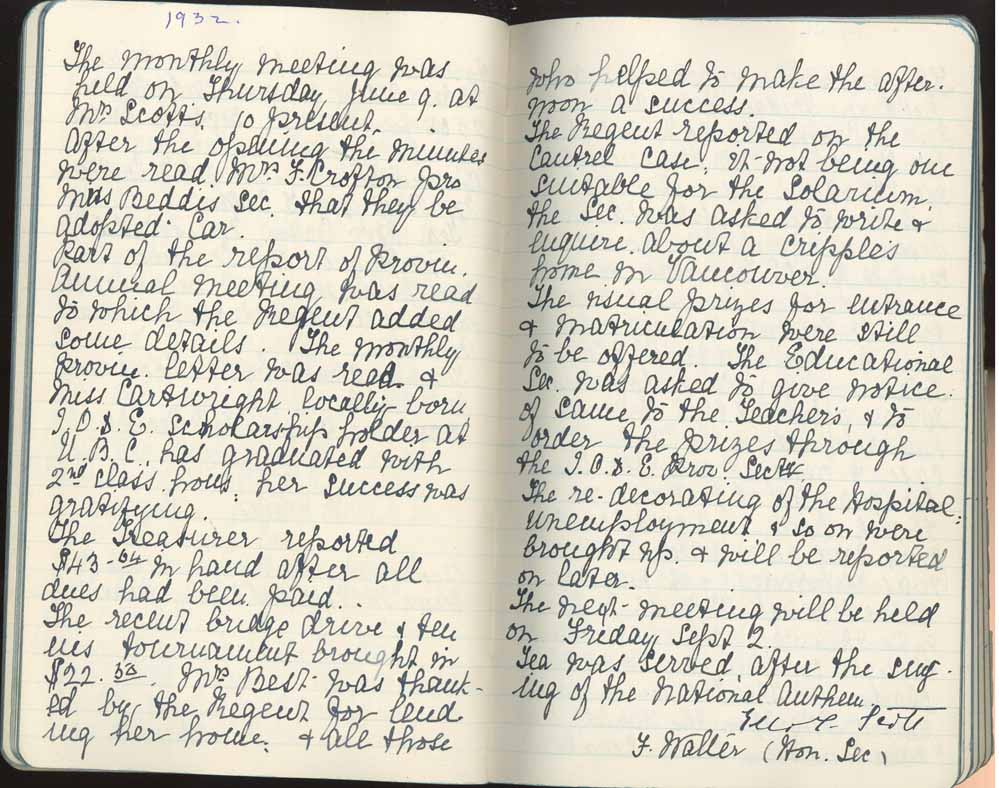 1932.
The monthly meeting was
held on Thursday June 9. at
Mrs Scotts. 10 present.
After the opening the minutes
were read. Mrs F. Crofton pro
Miss Beddis Sec. that they be
adopted. Car.
Part of the report of Provin.
Annual meeting was read
to which the Regent added
some details. The monthly
provin. letter was read. &
Miss Cartwright, locally born
I.O.D.E. scholarship holder at
U.B.C. has graduated with
2nd class hons; her success was
gratifying.
The Treasurer reported
$43-04 in hand after all
dues had been paid..
The recent bridge drive & ten
nis tournament brought in
$22. Mrs Best was thank-
ed by the Regent for lend
ing her home, & all those
who helped to make the after-
noon a success.
The Regent reported on the
Cautrel case; it not being one
suitable for the Solarium,
the Sec. was asked to write &
enquire about a cripples
home in Vancouver.
The usual prizes for entrance
& matriculation were still
to be offered. The Educational
Sec. was asked to give notice
of same to the Teachers, & to
order the prizes through
the I.O.D.E. Prov. Secty.
The re-decorating of the Hospital;
unemployment & so on were
brought up & will be reported
on later.
The next meeting will be held
on Friday Sept 2.
Tea was served, after the sing-
ing of the National Anthem.
Scott
F. Walter (Hon. Sec)